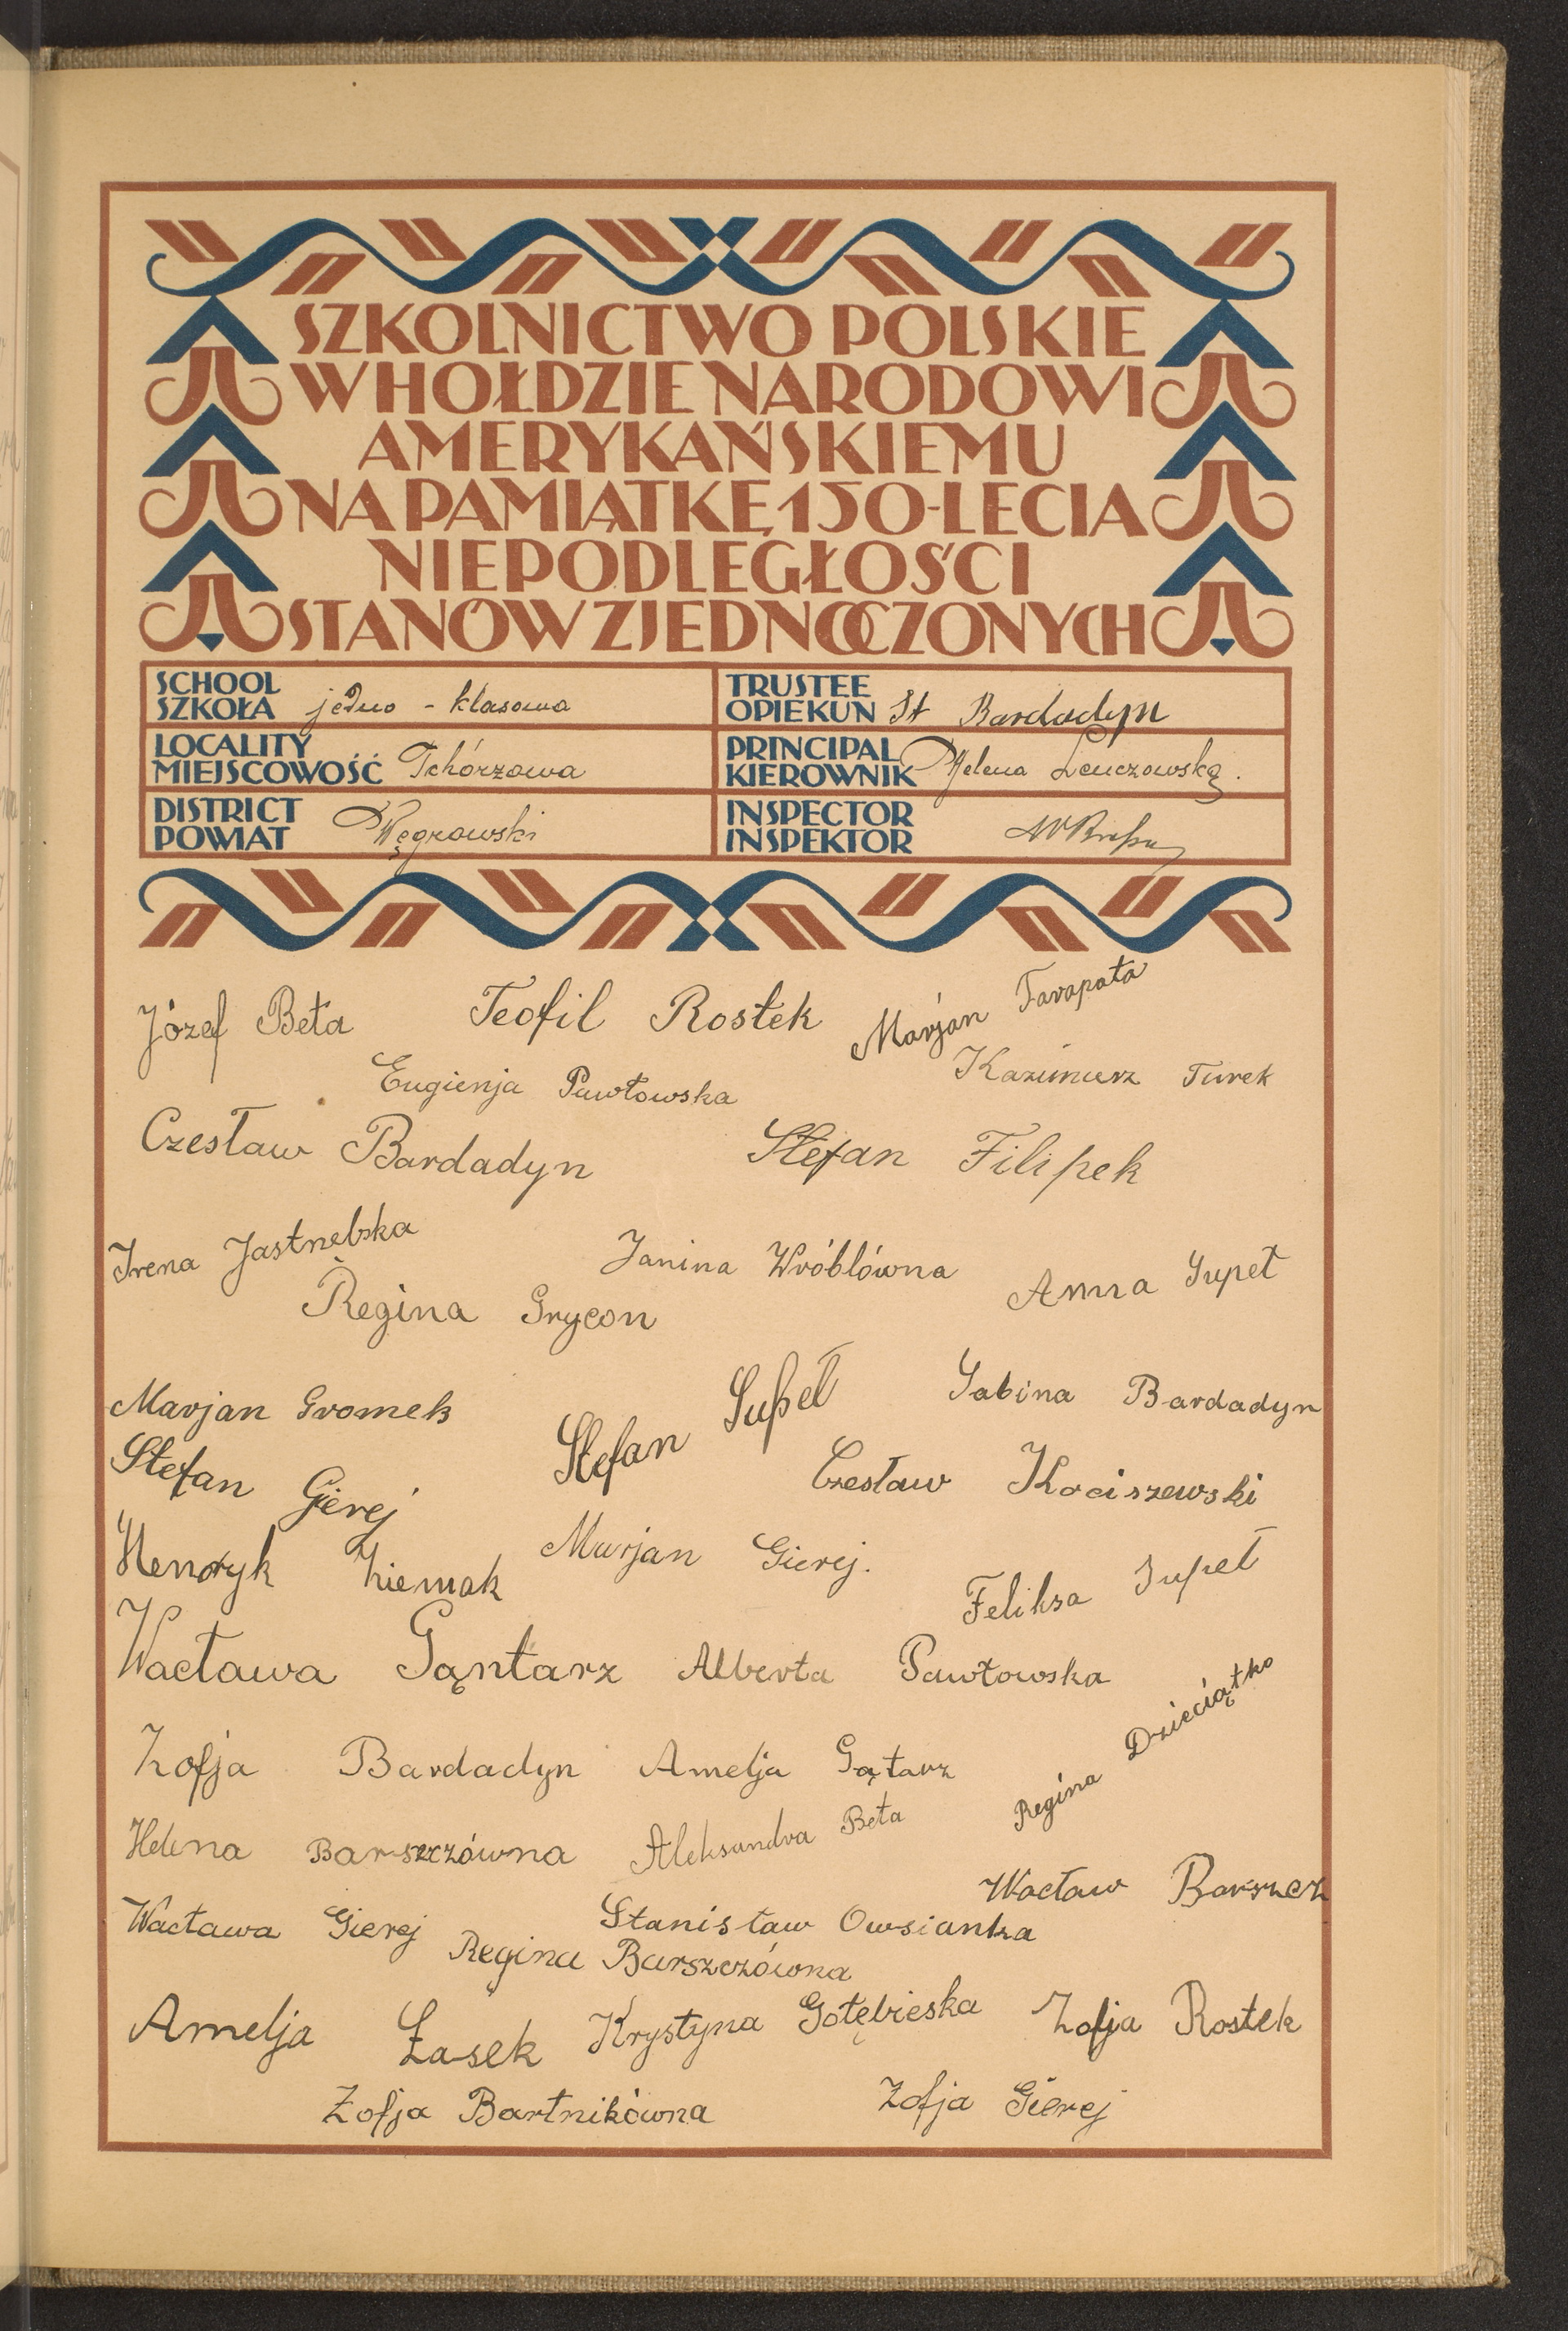 SZKOLNICTWO POLSKIE
W HOŁDZIE NARODOWI
AMERYKAŃSKIEMU
NA PAMIĄTKĘ 150-LECIA
NIEPODLEGŁOŚCI
STANÓW ZJEDNOCZONYCH
SCHOOL
SZKOŁA jedno - klasowa
TRUSTEE
OPIEKUN St Bardadyn
LOCALITY
MIEJSCOWOŚĆ Tchórzowa
PRINCIPAL
KIEROWNIK Helena Lenczowska.
DISTRICT
POWIAT Węgrowski
INSPECTOR
INSPEKTOR
Józef Beta Teofil Rostek Marjan Tarapata
Eugienja Pawłowska Kazimierz Turek
Czesław Bardadyn Stefan Filipek
Irena Jastrzębska Janina Wróblówna Anna Supeł
Regina Grycon
Marjan Gromek Stefan Supeł Sabina Bardadyn
Stefan Gierej Czesław Kociszewski
Henryk Ziemak Marjan Gierej. Feliksa Supeł
Wacława Gąntarz Alberta Pawłowska
Zofja Bardadyn Amelja Gątarz Regina Dzieciątko
Helena Barszczówna Aleksandra Beta
Wacław Barszcz
Wacława Gierej Stanisław Owsianka
Regina Barszczówna
Amelja Łasek Krystyna Gołębieska Zofja Rostek
Zofja Bartnikówna Zofja Gierej